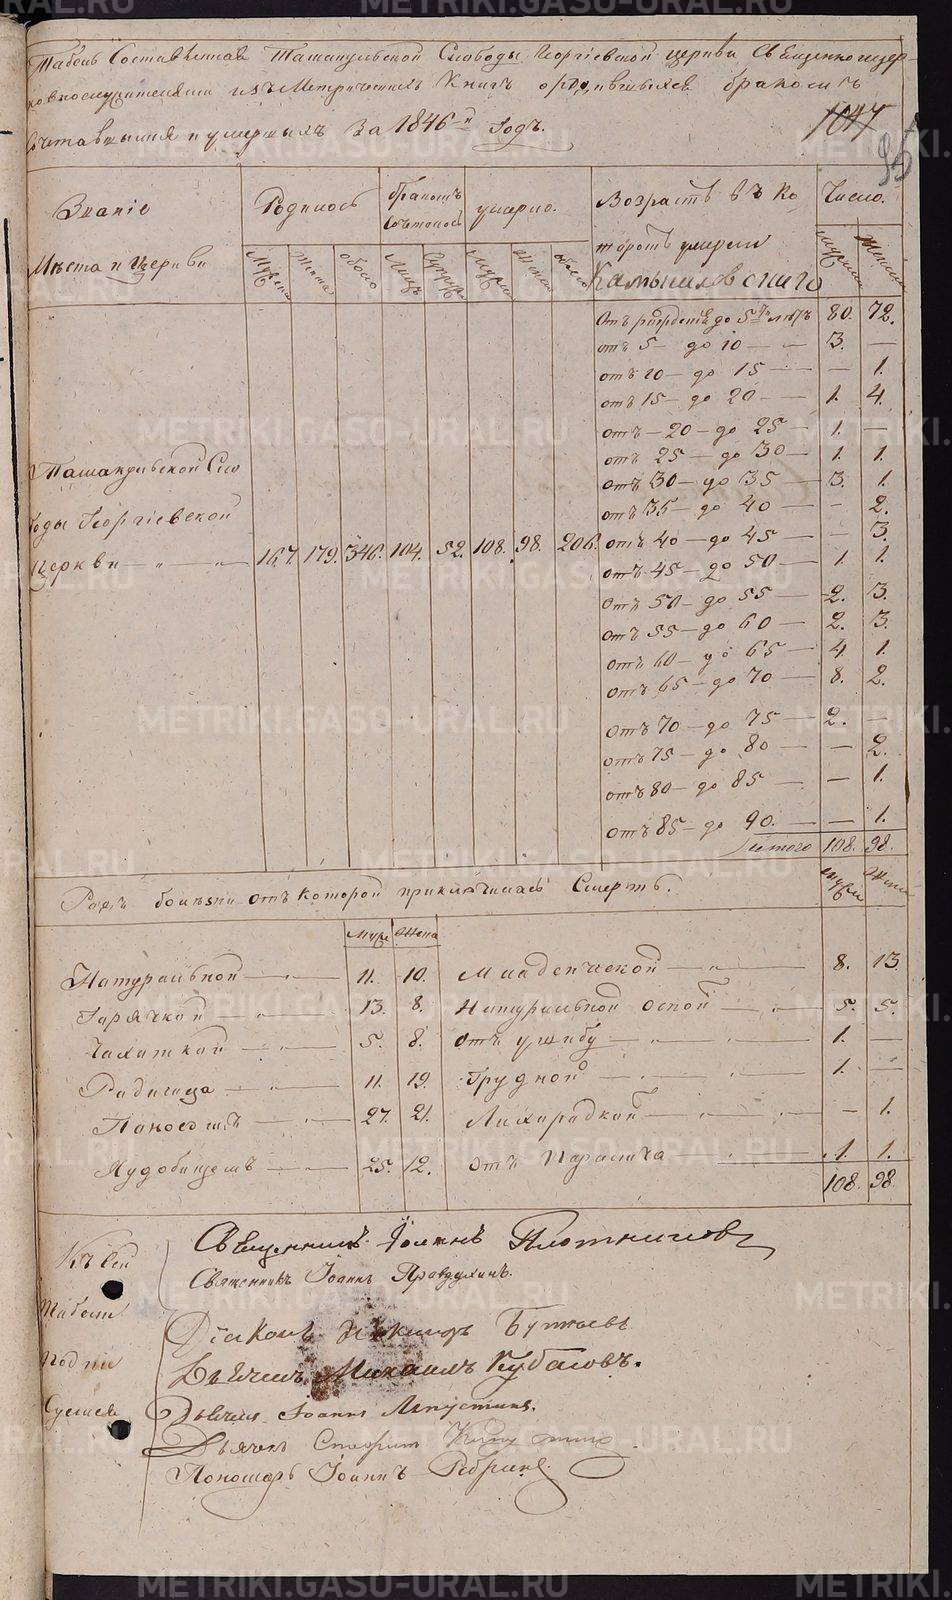 Табель Составленная Тамакульской Слободы Георгіевской церкви Священноцер-
ковнослужителями изъ Метрическихъ Книгъ о родившихся бракомъ
Сочетавшихся и умершихъ За 1846-й Годъ.
1047
Званіе
Мѣста и Церкви
Родилось
бракомъ
Сочеталось
умерло.
Возрастъ въ ко
торомъ умерли
Камышловскаго
Число.
Мужска Женска обоего Лицъ Супруж Мужск Женск обоего
Мужска Женска
Отъ рожденія до 5ти лѣтъ 80. 72.
отъ 5 — до 10 — — 3. —
отъ 10 — до 15 — — — 1.
отъ 15 — до 20 — — 1. 4.
отъ — 20 — до 25 — 1. —
отъ 25 — до 30 — 1. 1.
отъ 30 — до 35 — 3. 1.
отъ 35 — до 40 — — 2.
отъ 40 — до 45 — — 3.
отъ 45 — до 50 — 1. 1.
отъ 50 — до 55 — 2. 3.
отъ 55 — до 60 — 2. 3.
отъ 60 — до 65 — 4. 1.
отъ 65 — до 70 — 8. 2.
отъ 70 — до 75 — 2. —
отъ 75 — до 80 — — 2.
отъ 80 — до 85 — — 1.
отъ 85 — до 90. — — 1.
Итого 108. 98.
Тамакульской Сло
боды Георгіевской
Церкви — „ — „ — 167. 179. 346. 104. 52. 108. 98. 206.
Родъ болѣзни отъ которой приключилась Смерть.
Муж Жен
Муже Жена
Натуральной — „ — 11. 10. Младенческой — „ — 8. 13
Горячкой — „ — 13. 8. Натуральной Оспой — „ — 5. 5.
Чахоткой — „ — 5. 8. отъ ушибу — „ — „ — 1. —
Родимца — „ — 11. 19. Грудной — „ — „ — 1. —
Поносомъ — „ — 27. 21. Лихорадкой — „ — „ — — 1.
Худобищемъ — „ — 25. 12. отъ Паралича — „ — 1. 1.
108. 98
Къ сей
Табели
подпи
суемся
Священникъ Іоаннъ Плотниковъ
Священникъ Іоаннъ Правдухинъ.
Діаконъ Никаноръ Бутаевъ
Дьячекъ Михаилъ Кубасовъ.
Дьячекъ Іоаннъ Лепустинъ.
Дьячекъ
Пономарь Іоаннъ Ребринъ.
METRIKI.GASO-URAL.RU